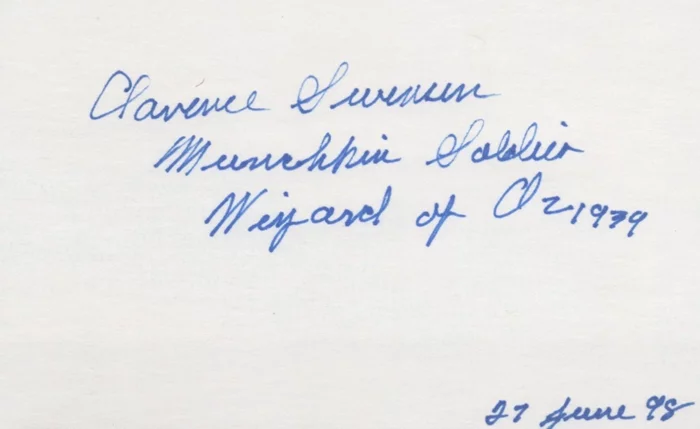 Clarence Swensen
Munchkin Soldier
Wizard of Oz, 1939
27 June 98